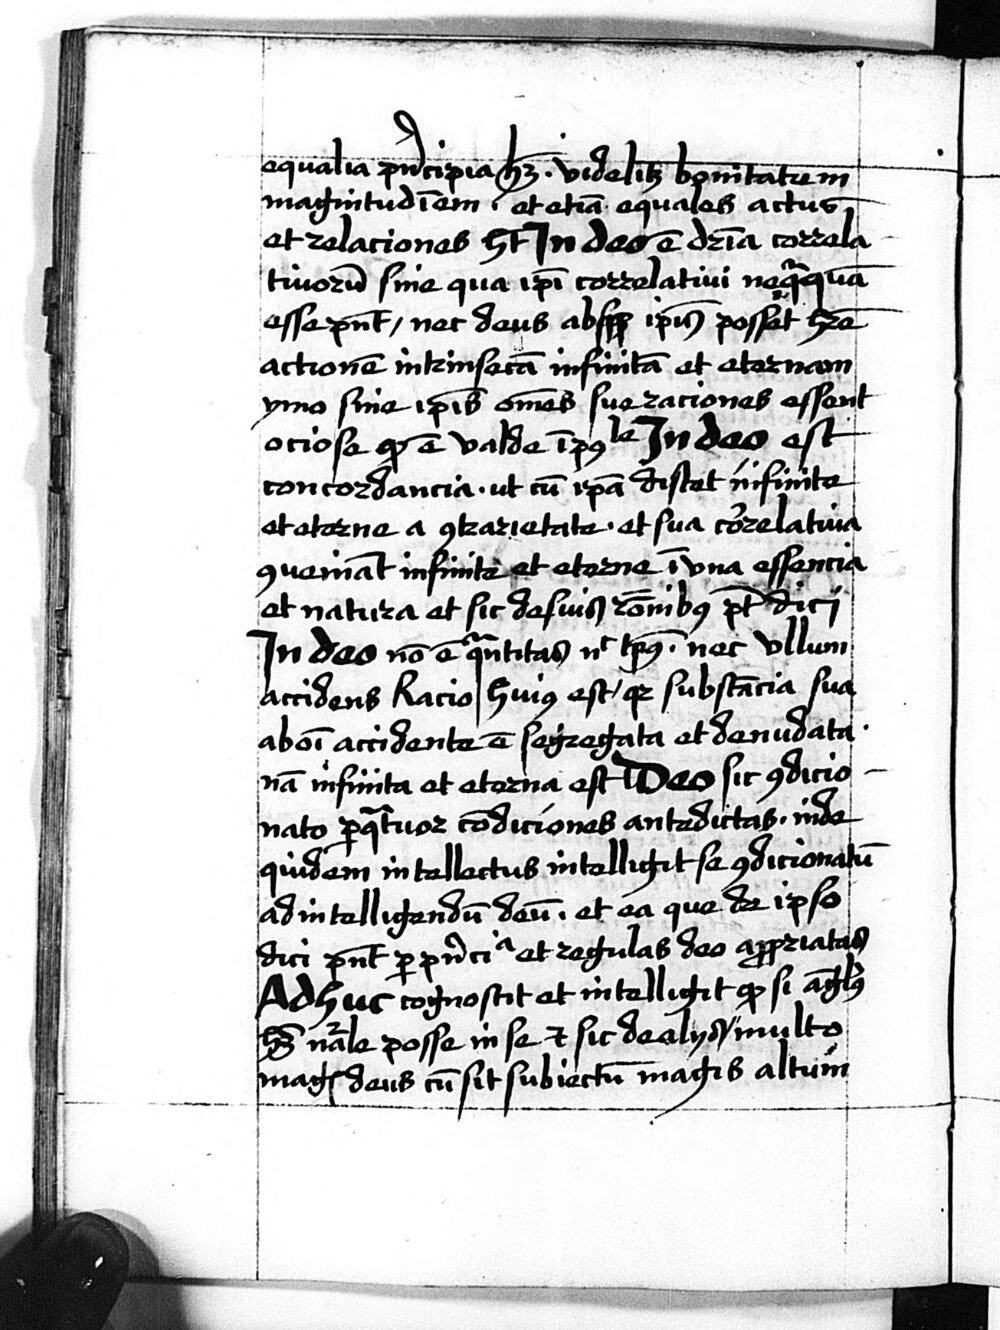 equalia pn̄cipia hȝ · videlitȝ bonitatem
magnitudīem · et etiā equales actus
et relaciones Ht In deo ē drīa correla
tivorū sine qua ip̄i correlativi neqͣquā
esse pn̄t / nec deus absqꝫ ip̄is posset hr̄e
actionē intrinsecā infinitā et eternam
ymo sine ip̄is om̄es sue raciones essent
ociose qꝫ ē valde īpꝯle In deo est
concordancia · ut cū ip̄a distet infinite
et eterne a ꝯtrarietate · et sua correlativa
ꝯueniāt infinite et eterne ī una essencia
et natura et sic de suis rōnibꝯ pt̄ dici
In deo nō ē qͣntitas nͨ tp̄ꝯ · nec ullum
accidens Racio huiꝯ est / qꝛ substācia sua
ab oī accidente ē segregata et denudata ·
nā infinita et eterna est Deo sic ꝯdicio
nato ꝑ qͣtuor cōdiciones antedictas · inde
quidem intellectus intelligit se ꝯdicionatū
ad intelligendū deū · et ea que de ipso
dici pn̄t ꝑ pn̄ciͣ et regulas deo apꝓpriatas
Adhuc cognoscit et intelligit qꝫ si āglꝯ
hȝ nāle posse in se ⁊ sic de alijs / multo
magis deus cū sit subiectū magis altum